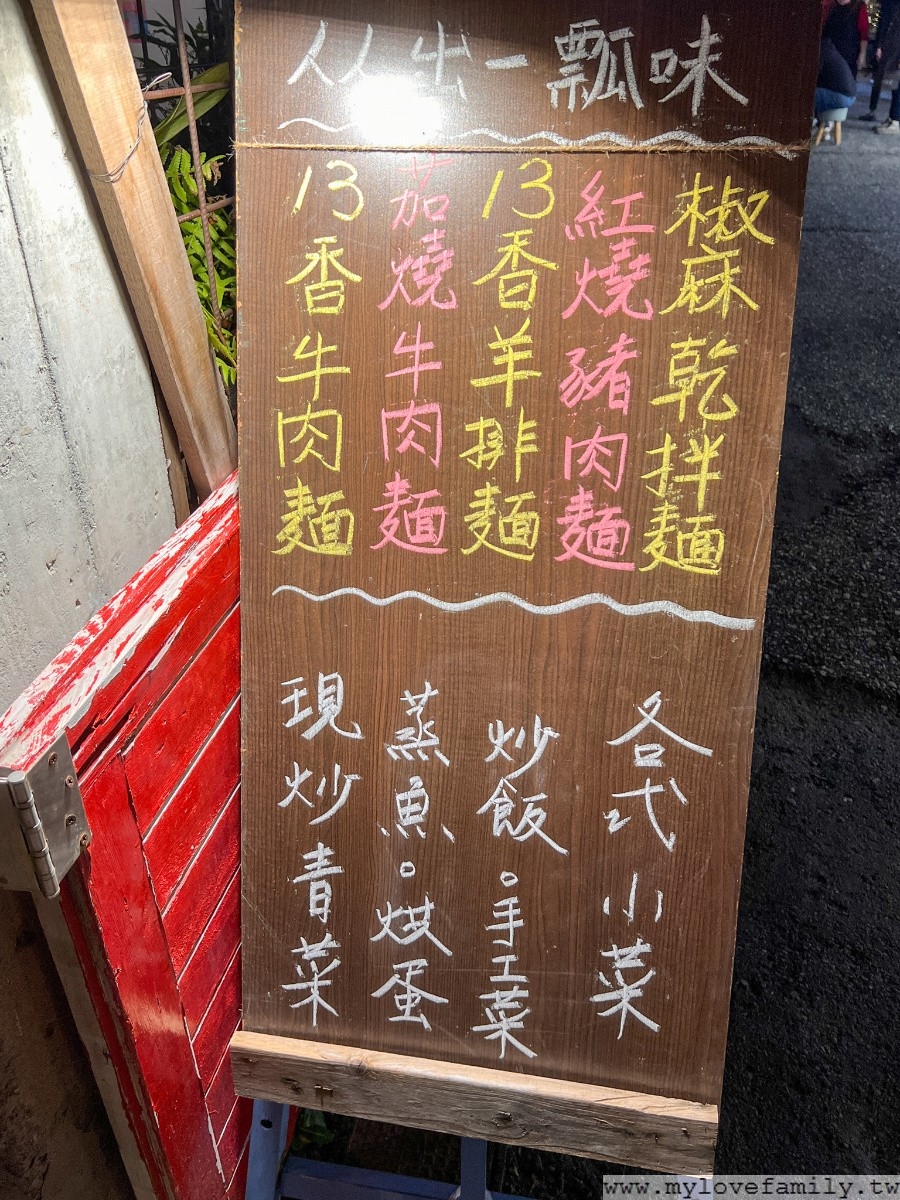 从出一瓢味
椒麻乾拌麵
紅燒豬肉麵
13香羊排麵
茄燒牛肉麵
13香牛肉麵
各式小菜
炒飯。手工菜
蒸魚。烘蛋
現炒青菜
www.mylovefamily.tw